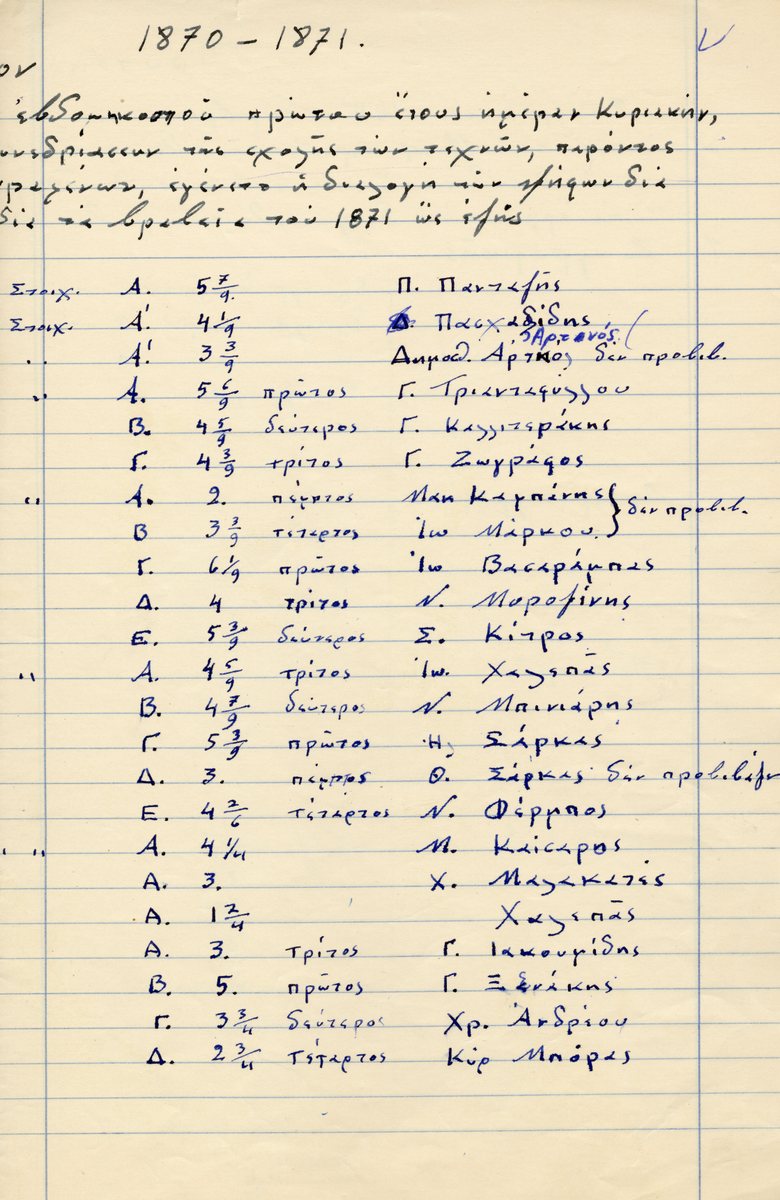 1870 – 1871.
ον
ἑβδομηκοστοῦ πρώτου ἔτους ἡμέραν Κυριακήν,
συνεδρίασεων τῆς σχολῆς τῶν τεχνῶν, παρόντος
ἐγένετο ἡ διαλογὴ τῶν ψήφων διὰ
διὰ τὰ βραβεῖα τοῦ 1871 ὡς ἑξῆς
Στοιχ. Α. 5 7/9. Π. Πανταζῆς
Στοιχ. Α' 4 1/9 Δ. Πασχαλίδης
Ἀρτανός.
" Α' 3 3/9 Δημοσ. Ἀρτηνός δέν προβιβ.
" Α. 5 6/9 πρῶτος Γ. Τριανταφύλλου
Β. 4 5/9 δεύτερος Γ. Καλλιτεράκης
Γ. 4 3/9 τρίτος Γ. Ζωγράφος
" Α. 2. πέμπτος Μαν Καμπάνης } δέν προβιβ.
Β 3 3/9 τέταρτος Ἰω Μάρκου.
Γ. 6 1/9 πρῶτος Ἰω Βασαράμπας
Δ. 4 τρίτος Ν. Μυροφίνης
Ε. 5 3/9 δεύτερος Σ. Κίτρος
" Α. 4 5/9 τρίτος Ἰω. Χαλεπᾶς
Β. 4 7/9 δεύτερος Ν. Μπινιάρης
Γ. 5 3/9 πρῶτος Ηλ Σάρκας
Δ. 3. πέμπτος Θ. Σάρκας δέν προβιβάζ
Ε. 4 2/6 τέταρτος Ν. Φέρμπος
" " Α. 4 1/4 Μ. Καίσαρης
Α. 3. Χ. Μαλακατές
Α. 1 2/4 Χαλεπᾶς
Α. 3. τρίτος Γ. Ιακουμίδης
Β. 5. πρῶτος Γ. Ξενάκης
Γ. 3 3/4 δεύτερος Χρ. Ἀνδρέου
Δ. 2 3/4 τέταρτος Κύρ Μπόρας